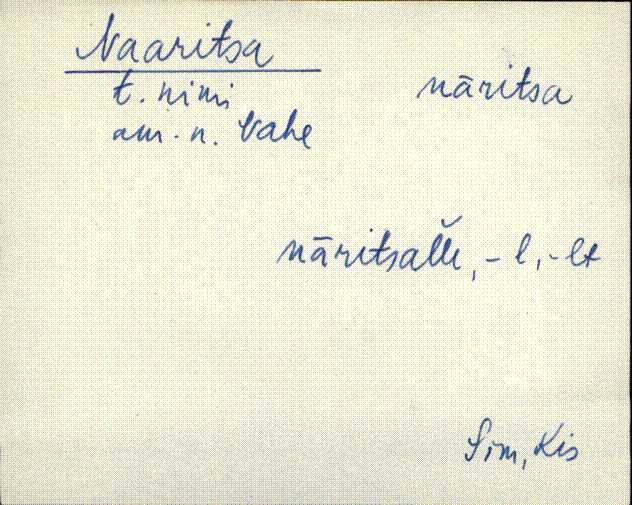 Naaritsa
t. nimi nāritsa
am. n. Vahe
nāritsal̆l̆e, -l, -lt
Sim, Kis